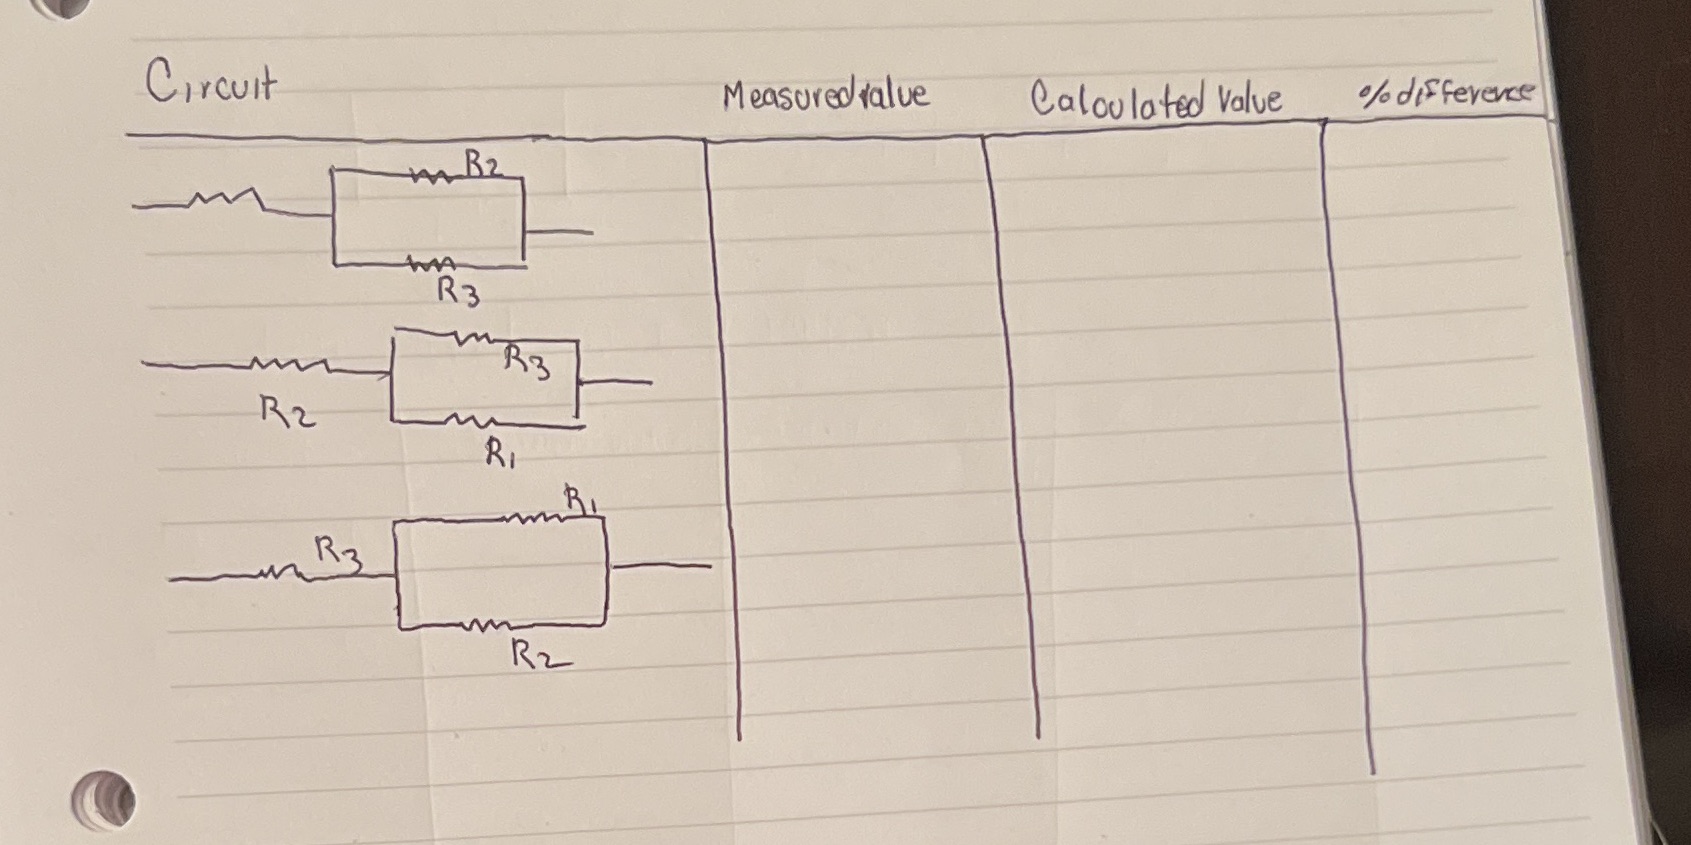 Circuit Measured value Calculated Value % difference
R2
R3
R3
R2
R1
R1
R3
R2